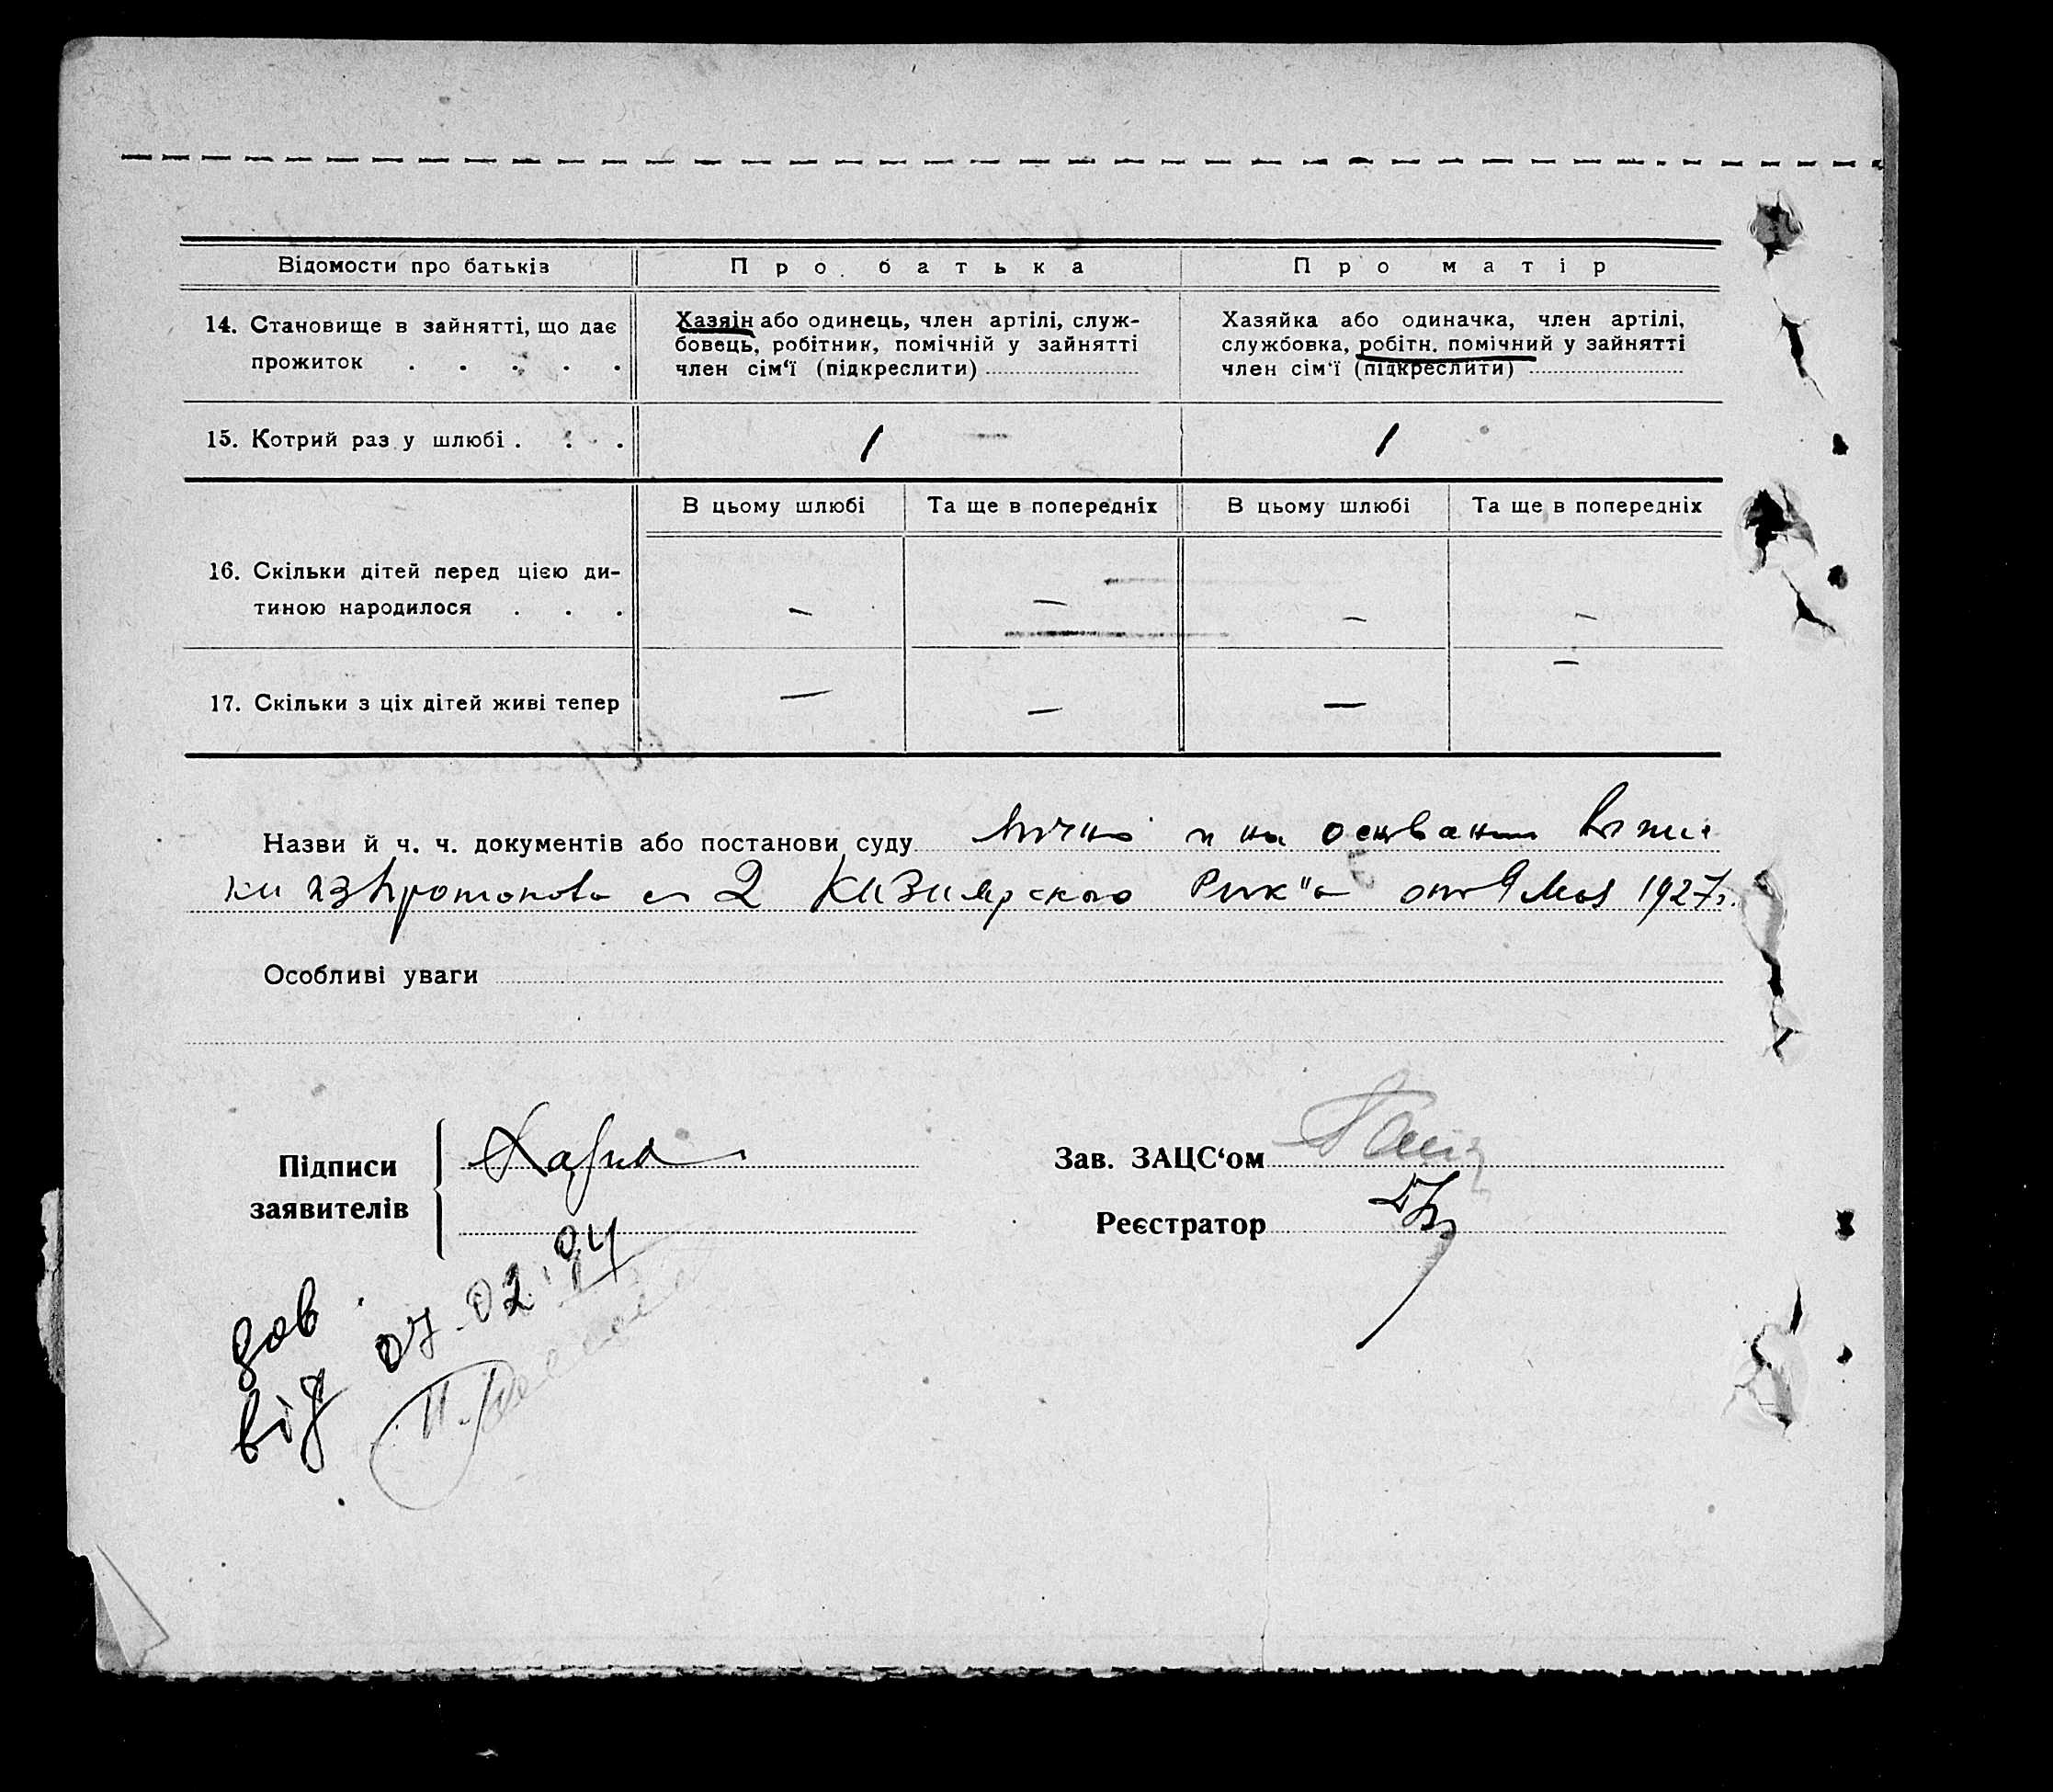 Відомости про батьків
Про батька
Про матір
14. Становище в зайнятті, що дає
прожиток . . . . .
Хазяїн або одинець, член артілі, служ-
бовець, робітник, помічній у зайнятті
член сім‘ї (підкреслити)
Хазяйка або одиначка, член артілі,
службовка, робітн. помічний у зайнятті
член сім‘ї (підкреслити)
15. Котрий раз у шлюбі . . .
1
1
В цьому шлюбі
Та ще в попередніх
В цьому шлюбі
Та ще в попередніх
16. Скільки дітей перед цією ди-
тиною народилося . . .
–
–
–
–
17. Скільки з ціх дітей живі тепер
–
–
–
–
Назви й ч. ч. документів або постанови суду и на основании выпис
ки из протокола 2 от 9 Мая 1927г.
Особливі уваги
Підписи
заявителів
Зав. ЗАЦС‘ом
Реєстратор
дов
від 07.02.94